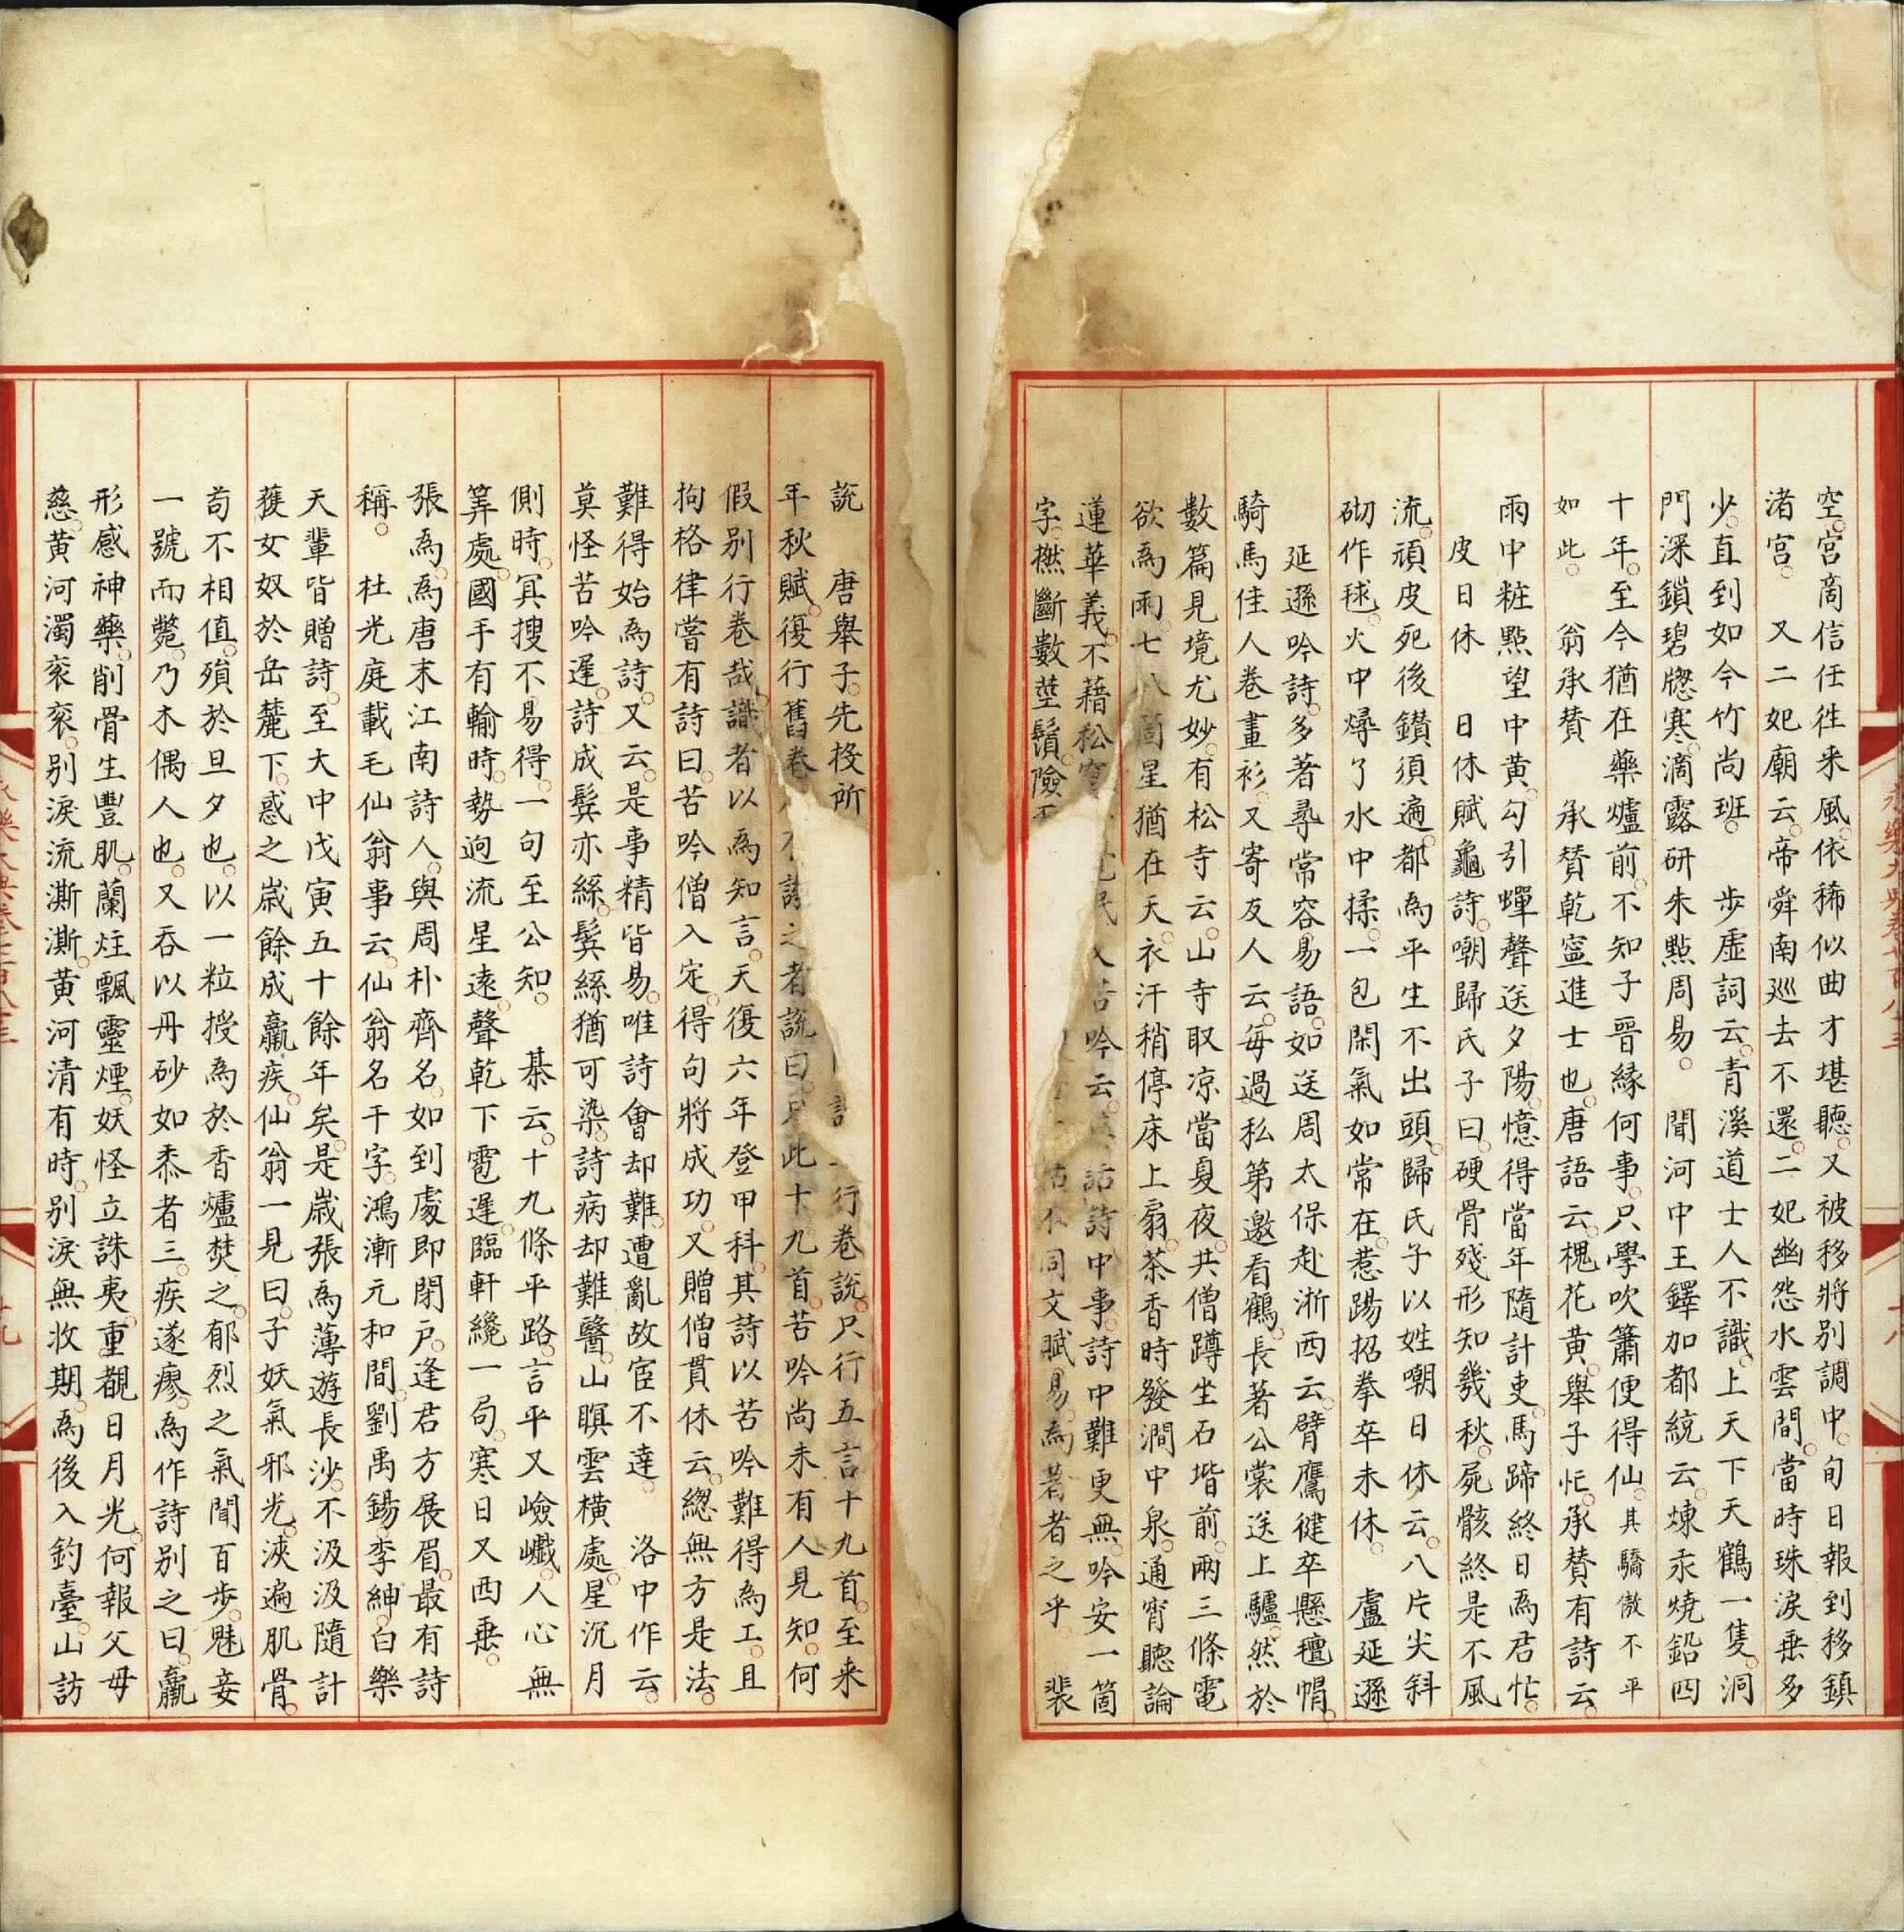 空宮商信任往来風依稀似曲才堪聽又被移將別調中旬日報到移鎮
渚宫又二妃廟云帝舜南巡去不還二妃幽怨水雲間當時珠淚垂多
少直到如今竹尚班步虛詞云青溪道士人不識上天下天鶴一隻洞
門深鎖碧牕寒滴露研朱點周易聞河中王鐸加都統云煉汞燒鉛四
十年至今猶在藥爐前不知子晉緣何事只學吹簫便得仙其驕傲不平
如此翁承贊承贊乾寧進士也唐語云槐花黄舉子忙承贊有詩云
雨中粧點望中黄勾引蟬聲送夕陽憶得當年隨計吏馬蹄終日為君忙
皮日休日休賦龜詩嘲歸氏子曰硬骨殘形知幾秋屍骸終是不風
流頑皮死後鑽須遍都為平生不出頭歸氏子以姓嘲日休云八片尖斜
砌作毬火中燖了水中揉一包閑氣如常在惹踢招拳卒未休盧延遜
延遜吟詩多著尋常容易語如送周太保赴浙西云臂鷹健卒懸氊帽
騎馬佳人卷畫衫又寄友人云每過私第邀看鶴長著公裳送上驢然於
數篇見境尤妙有松寺云山寺取凉當夏夜共僧蹲坐石堦前兩三條電
欲為雨七八箇星猶在天衣汗稍停床上扇茶香時發澗中泉通宵聽論
蓮華義不藉松吟云詩中事詩中難更無吟安一箇
字撚斷數莖鬚險同文賦易為著者之乎裴
說唐舉子先投所行卷說只行五言十九首至来
年秋賦復行舊卷者說曰只此十九首苦吟尚未有人見知何
假别行卷哉識者以為知言天復六年登甲科其詩以苦吟難得為工且
拘格律嘗有詩曰苦吟僧入定得句將成功又贈僧貫休云緫無方是法
難得始為詩又云是事精皆易唯詩會却難遭亂故宦不達洛中作云
莫怪苦吟遲詩成鬂亦絲鬂絲猶可染詩病却難醫山暝雲橫處星沉月
側時冥搜不易得一句至公知棊云十九條平路言平又嶮巇人心無
筭處國手有輸時勢逈流星逺聲乾下雹遲臨軒纔一局寒日又西垂
張為為唐末江南詩人與周朴齊名如到處即閉戸逢君方展眉最有詩
稱杜光庭載毛仙翁事云仙翁名干字鴻漸元和間劉禹錫李紳白樂
天輩皆贈詩至大中戊寅五十餘年矣是歳張為薄遊長沙不汲汲隨計
獲女奴於岳麓下惑之歳餘成羸疾仙翁一見曰子妖氣邪光浹遍肌骨
苟不相值殞於旦夕也以一粒授為於香爐焚之郁烈之氣聞百歩魅妾
一號而斃乃木偶人也又吞以丹砂如黍者三疾遂瘳為作詩别之曰羸
形感神藥削骨生豐肌蘭炷飄靈煙妖怪立誅夷重覩日月光何報父母
慈黄河濁衮衮别淚流澌澌黄河清有時别淚無收期為後入釣臺山訪